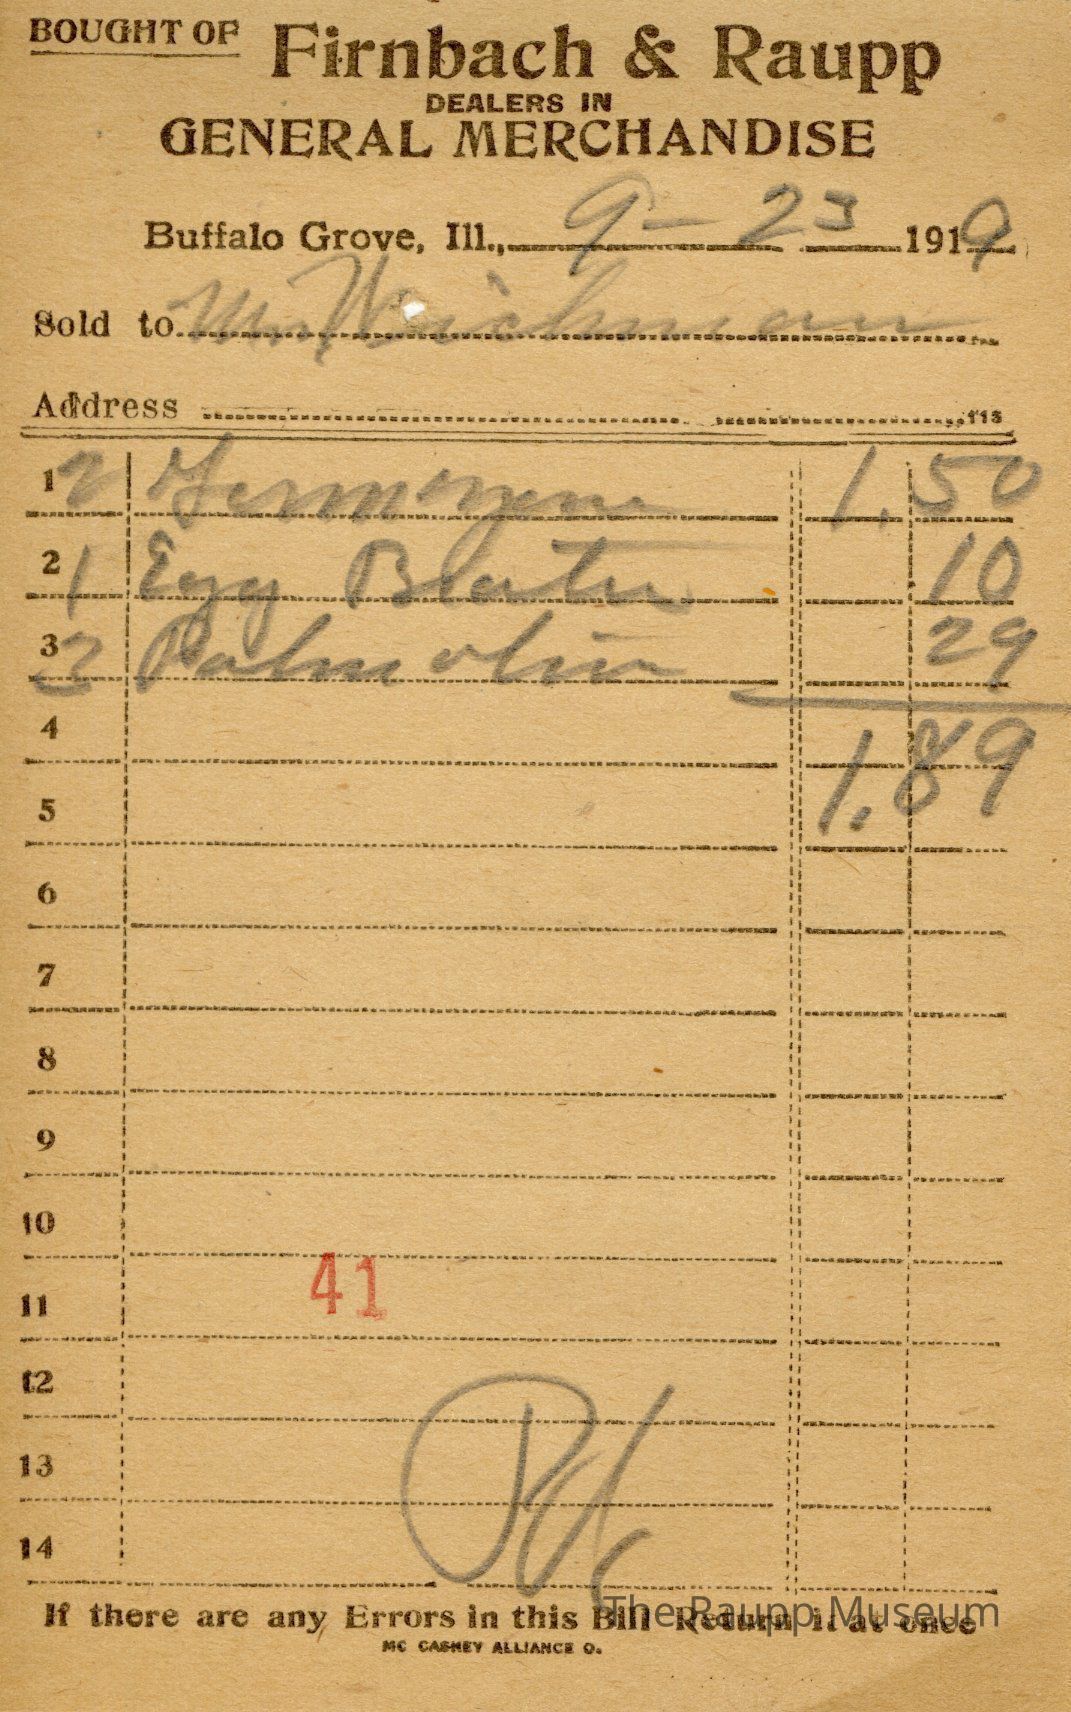 BOUGHT OF Firnbach & Raupp
DEALERS IN
GENERAL MERCHANDISE
Buffalo Grove, Ill., 9-23 1919
Sold to Wm Weichman
Address 113
1 2 1.50
2 1 Egg Beater 10
3 2 Palmolive 29
4 1.89
5
6
7
8
9
10
11 41
12
13 Pd
14
If there are any Errors in this Bill Return it at once
The Raupp Museum
MC CASKEY ALLIANCE O.